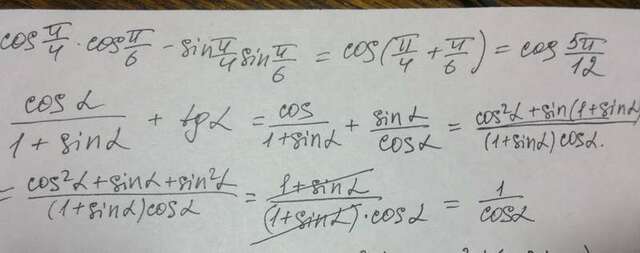 cos π/4 · cos π/6 - sin π/4 sin π/6 = cos(π/4 + π/6) = cos 5π/12
cosα/(1 + sinα) + tgα = cos/(1+sinα) + sinα/cosα = (cos²α + sin(1+sinα)/((1+sinα)cosα.
= (cos²α + sinα + sin²α)/((1+sinα)cosα) = (1 + sinα)/((1+sinα)·cosα) = 1/cosα